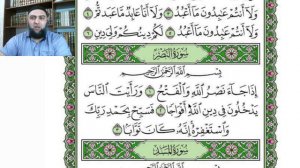 وَلَا أَنتُمْ عَابِدُونَ مَا أَعْبُدُ ٣ وَلَا أَنَا عَابِدٌ مَّا عَبَدتُّمْ ٤
وَلَا أَنتُمْ عَابِدُونَ مَا أَعْبُدُ ٥ لَكُمْ دِينُكُمْ وَلِيَ دِينِ ٦
سُورَةُ النَّصْرِ
بِسْمِ اللَّهِ الرَّحْمَٰنِ الرَّحِيمِ
إِذَا جَاءَ نَصْرُ اللَّهِ وَالْفَتْحُ ١ وَرَأَيْتَ النَّاسَ
يَدْخُلُونَ فِي دِينِ اللَّهِ أَفْوَاجًا ٢ فَسَبِّحْ بِحَمْدِ رَبِّكَ
وَاسْتَغْفِرْهُ إِنَّهُ كَانَ تَوَّابًا ٣
سُورَةُ الْمَسَدِ